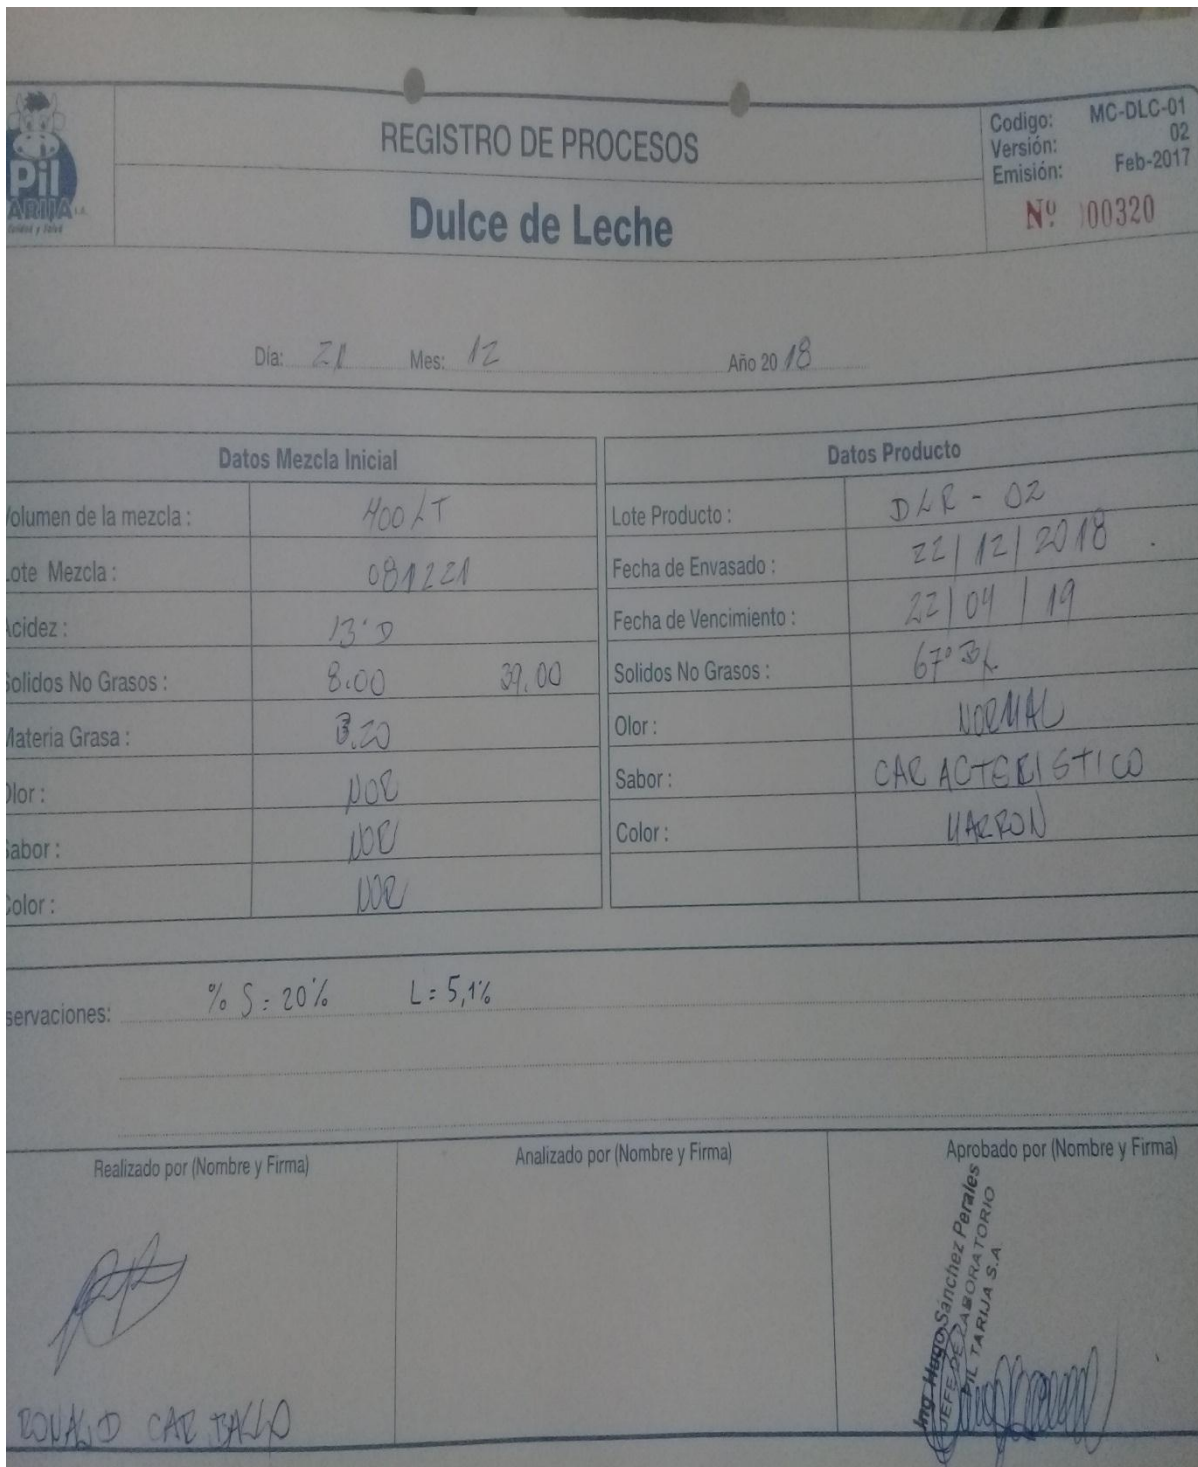 Pil
ARIJA S.A.
REGISTRO DE PROCESOS
Dulce de Leche
Codigo: MC-DLC-01
Versión: 02
Emisión: Feb-2017
Nº 00320
Día: 21 Mes: 12 Año 20 18
Datos Mezcla Inicial
olumen de la mezcla : 400 LT
ote Mezcla : 081221
cidez : 13°D
olidos No Grasos : 8.00 39.00
Materia Grasa : 3.20
Olor : NOR
abor : NOR
Color : NOR
Datos Producto
Lote Producto : DLR - 02
Fecha de Envasado : 22/12/2018
Fecha de Vencimiento : 22/04/19
Solidos No Grasos : 67° Bx
Olor : NORMAL
Sabor : CARACTERISTICO
Color : MARRON
servaciones: % S = 20% L = 5,1%
Realizado por (Nombre y Firma)
RONALD CARBALLO
Analizado por (Nombre y Firma)
Aprobado por (Nombre y Firma)
Ing. Hugo Sánchez Perales
JEFE DE LABORATORIO
PIL TARIJA S.A.